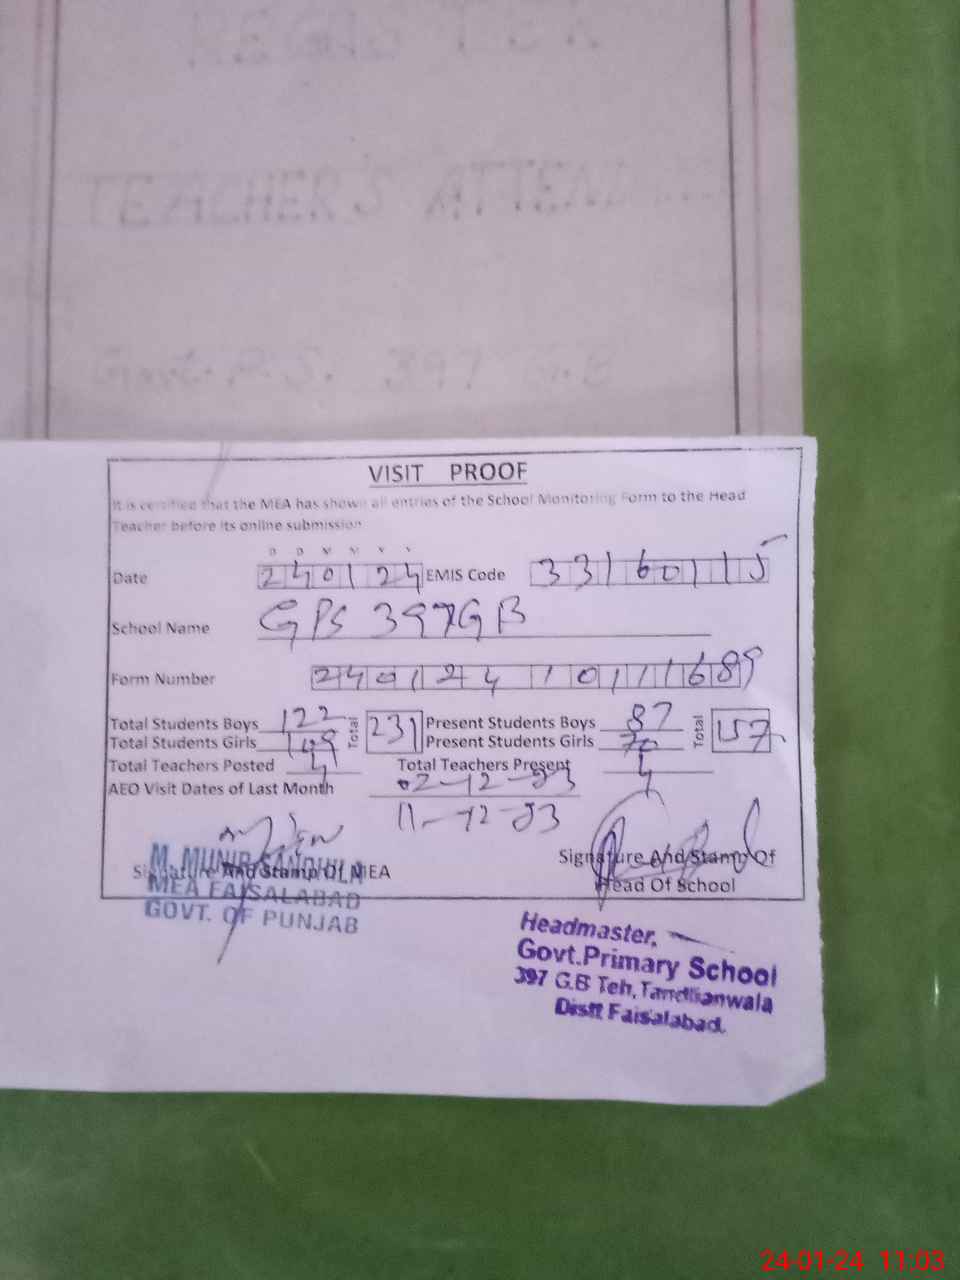 REGISTER
TEACHER'S ATTEND
Govt. P.S. 397 G.B
VISIT PROOF
It is certified that the MEA has shown all entries of the School Monitoring Form to the Head
Teacher before its online submission
D D M M Y Y
Date 240124 EMIS Code 33160115
School Name GPS 397GB
Form Number 240124101111689
Total Students Boys 122 Total 231 Present Students Boys 87 Total 157
Total Students Girls 109 Present Students Girls 70
Total Teachers Posted 4 Total Teachers Present 4
AEO Visit Dates of Last Month 02-12-23
11-12-23
Signature And Stamp Of MEA
M. MUNIR SANDHILA
MEA FAISALABAD
GOVT. OF PUNJAB
Signature And Stamp Of
Head Of School
Headmaster,
Govt.Primary School
397 G.B Teh, Tandlianwala
Distt Faisalabad.
24-01-24 11:03